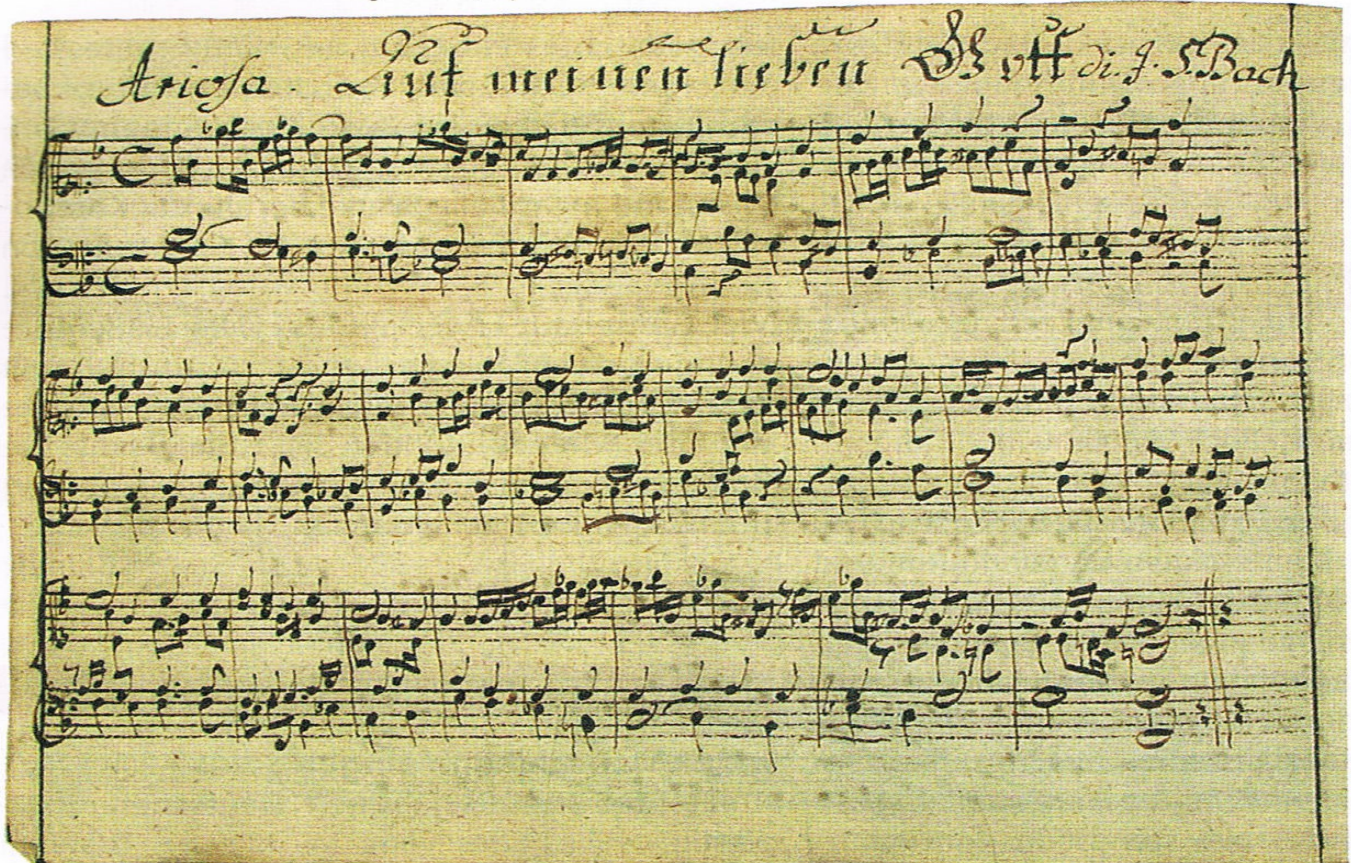 Ariosa. Auf meinen lieben Gott di. J. S. Bach